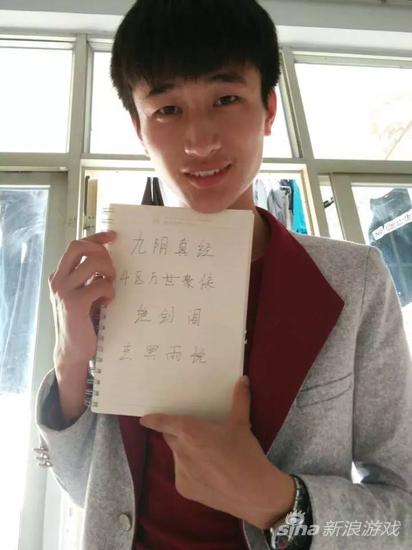 九阴真经
4区万世豪侠
绝剑阁
玄黑雨悦
sina新浪游戏